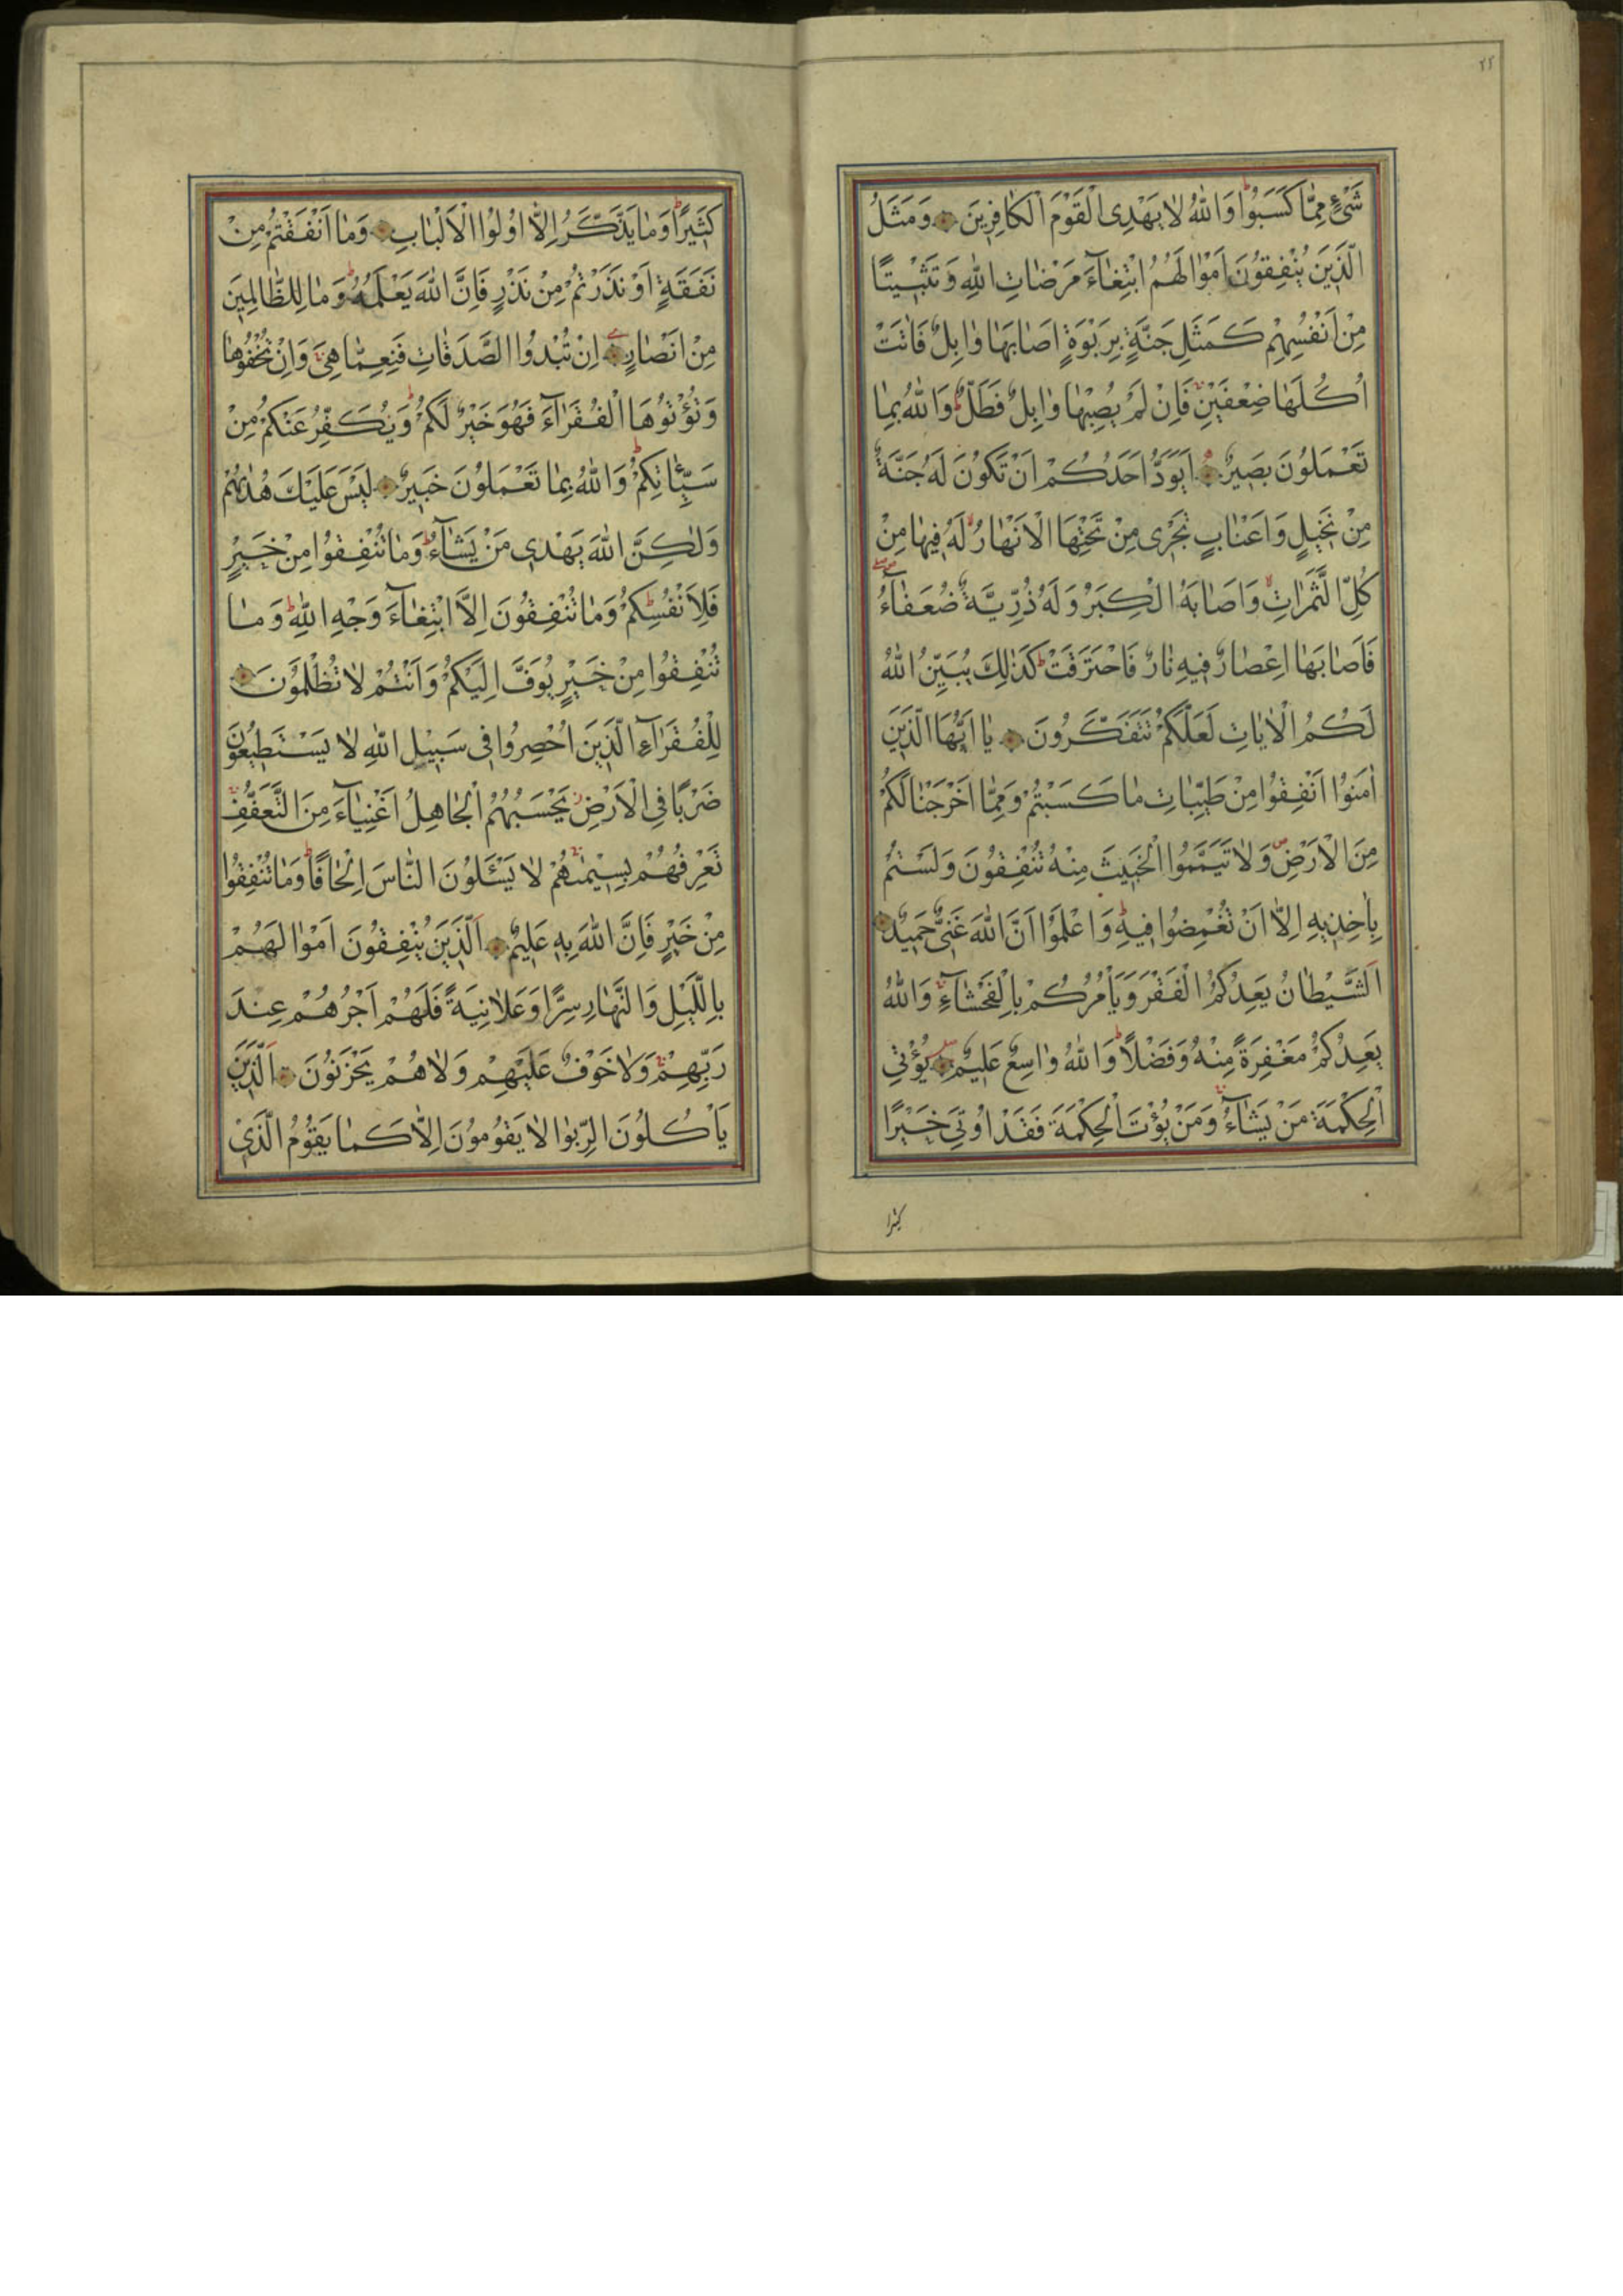 ٢٢
شَیْءٍ مِمَّا كَسَبُوا وَاللهُ لَا يَهْدِى الْقَوْمَ الْكَافِرِينَ وَمَثَلُ
الَّذِينَ يُنْفِقُونَ اَمْوَالَهُمُ ابْتِغَآءَ مَرْضَاتِ اللهِ وَتَثْبِيتًا
مِنْ اَنْفُسِهِمْ كَمَثَلِ جَنَّةٍ بِرَبْوَةٍ اَصَابَهَا وَابِلٌ فَاٰتَتْ
اُكُلَهَا ضِعْفَيْنِ فَاِنْ لَمْ يُصِبْهَا وَابِلٌ فَطَلٌّ وَاللهُ بِمَا
تَعْمَلُونَ بَصِيرٌ اَيَوَدُّ اَحَدُكُمْ اَنْ تَكُونَ لَهُ جَنَّةٌ
مِنْ نَخِيلٍ وَاَعْنَابٍ تَجْرِى مِنْ تَحْتِهَا الْاَنْهَارُ لَهُ فِيهَا مِنْ
كُلِّ الثَّمَرَاتِ وَاَصَابَهُ الْكِبَرُ وَلَهُ ذُرِّيَّةٌ ضُعَفَآءُ
فَاَصَابَهَا اِعْصَارٌ فِيهِ نَارٌ فَاحْتَرَقَتْ كَذٰلِكَ يُبَيِّنُ اللهُ
لَكُمُ الْاٰيَاتِ لَعَلَّكُمْ تَتَفَكَّرُونَ يَا اَيُّهَا الَّذِينَ
اٰمَنُوا اَنْفِقُوا مِنْ طَيِّبَاتِ مَا كَسَبْتُمْ وَمِمَّا اَخْرَجْنَا لَكُمْ
مِنَ الْاَرْضِ وَلَا تَيَمَّمُوا الْخَبِيثَ مِنْهُ تُنْفِقُونَ وَلَسْتُمْ
بِاٰخِذِيهِ اِلَّا اَنْ تُغْمِضُوا فِيهِ وَاعْلَمُوا اَنَّ اللهَ غَنِىٌّ حَمِيدٌ
اَلشَّيْطَانُ يَعِدُكُمُ الْفَقْرَ وَيَأْمُرُكُمْ بِالْفَحْشَآءِ وَاللهُ
يَعِدُكُمْ مَغْفِرَةً مِنْهُ وَفَضْلًا وَاللهُ وَاسِعٌ عَلِيمٌ يُؤْتِى
الْحِكْمَةَ مَنْ يَشَآءُ وَمَنْ يُؤْتَ الْحِكْمَةَ فَقَدْ اُوتِىَ خَيْرًا
كثيرا
كَثِيرًا وَمَا يَذَّكَّرُ اِلَّا اُولُوا الْاَلْبَابِ وَمَا اَنْفَقْتُمْ مِنْ
نَفَقَةٍ اَوْ نَذَرْتُمْ مِنْ نَذْرٍ فَاِنَّ اللهَ يَعْلَمُهُ وَمَا لِلظَّالِمِينَ
مِنْ اَنْصَارٍ اِنْ تُبْدُوا الصَّدَقَاتِ فَنِعِمَّا هِىَ وَاِنْ تُخْفُوهَا
وَتُؤْتُوهَا الْفُقَرَآءَ فَهُوَ خَيْرٌ لَكُمْ وَيُكَفِّرُ عَنْكُمْ مِنْ
سَيِّئَاتِكُمْ وَاللهُ بِمَا تَعْمَلُونَ خَبِيرٌ لَيْسَ عَلَيْكَ هُدٰيهُمْ
وَلٰكِنَّ اللهَ يَهْدِى مَنْ يَشَآءُ وَمَا تُنْفِقُوا مِنْ خَيْرٍ
فَلِاَنْفُسِكُمْ وَمَا تُنْفِقُونَ اِلَّا ابْتِغَآءَ وَجْهِ اللهِ وَمَا
تُنْفِقُوا مِنْ خَيْرٍ يُوَفَّ اِلَيْكُمْ وَاَنْتُمْ لَا تُظْلَمُونَ
لِلْفُقَرَآءِ الَّذِينَ اُحْصِرُوا فِى سَبِيلِ اللهِ لَا يَسْتَطِيعُونَ
ضَرْبًا فِى الْاَرْضِ يَحْسَبُهُمُ الْجَاهِلُ اَغْنِيَآءَ مِنَ التَّعَفُّفِ
تَعْرِفُهُمْ بِسِيمٰيهُمْ لَا يَسْئَلُونَ النَّاسَ اِلْحَافًا وَمَا تُنْفِقُوا
مِنْ خَيْرٍ فَاِنَّ اللهَ بِهِ عَلِيمٌ اَلَّذِينَ يُنْفِقُونَ اَمْوَالَهُمْ
بِاللَّيْلِ وَالنَّهَارِ سِرًّا وَعَلَانِيَةً فَلَهُمْ اَجْرُهُمْ عِنْدَ
رَبِّهِمْ وَلَا خَوْفٌ عَلَيْهِمْ وَلَا هُمْ يَحْزَنُونَ اَلَّذِينَ
يَأْكُلُونَ الرِّبٰوا لَا يَقُومُونَ اِلَّا كَمَا يَقُومُ الَّذِى